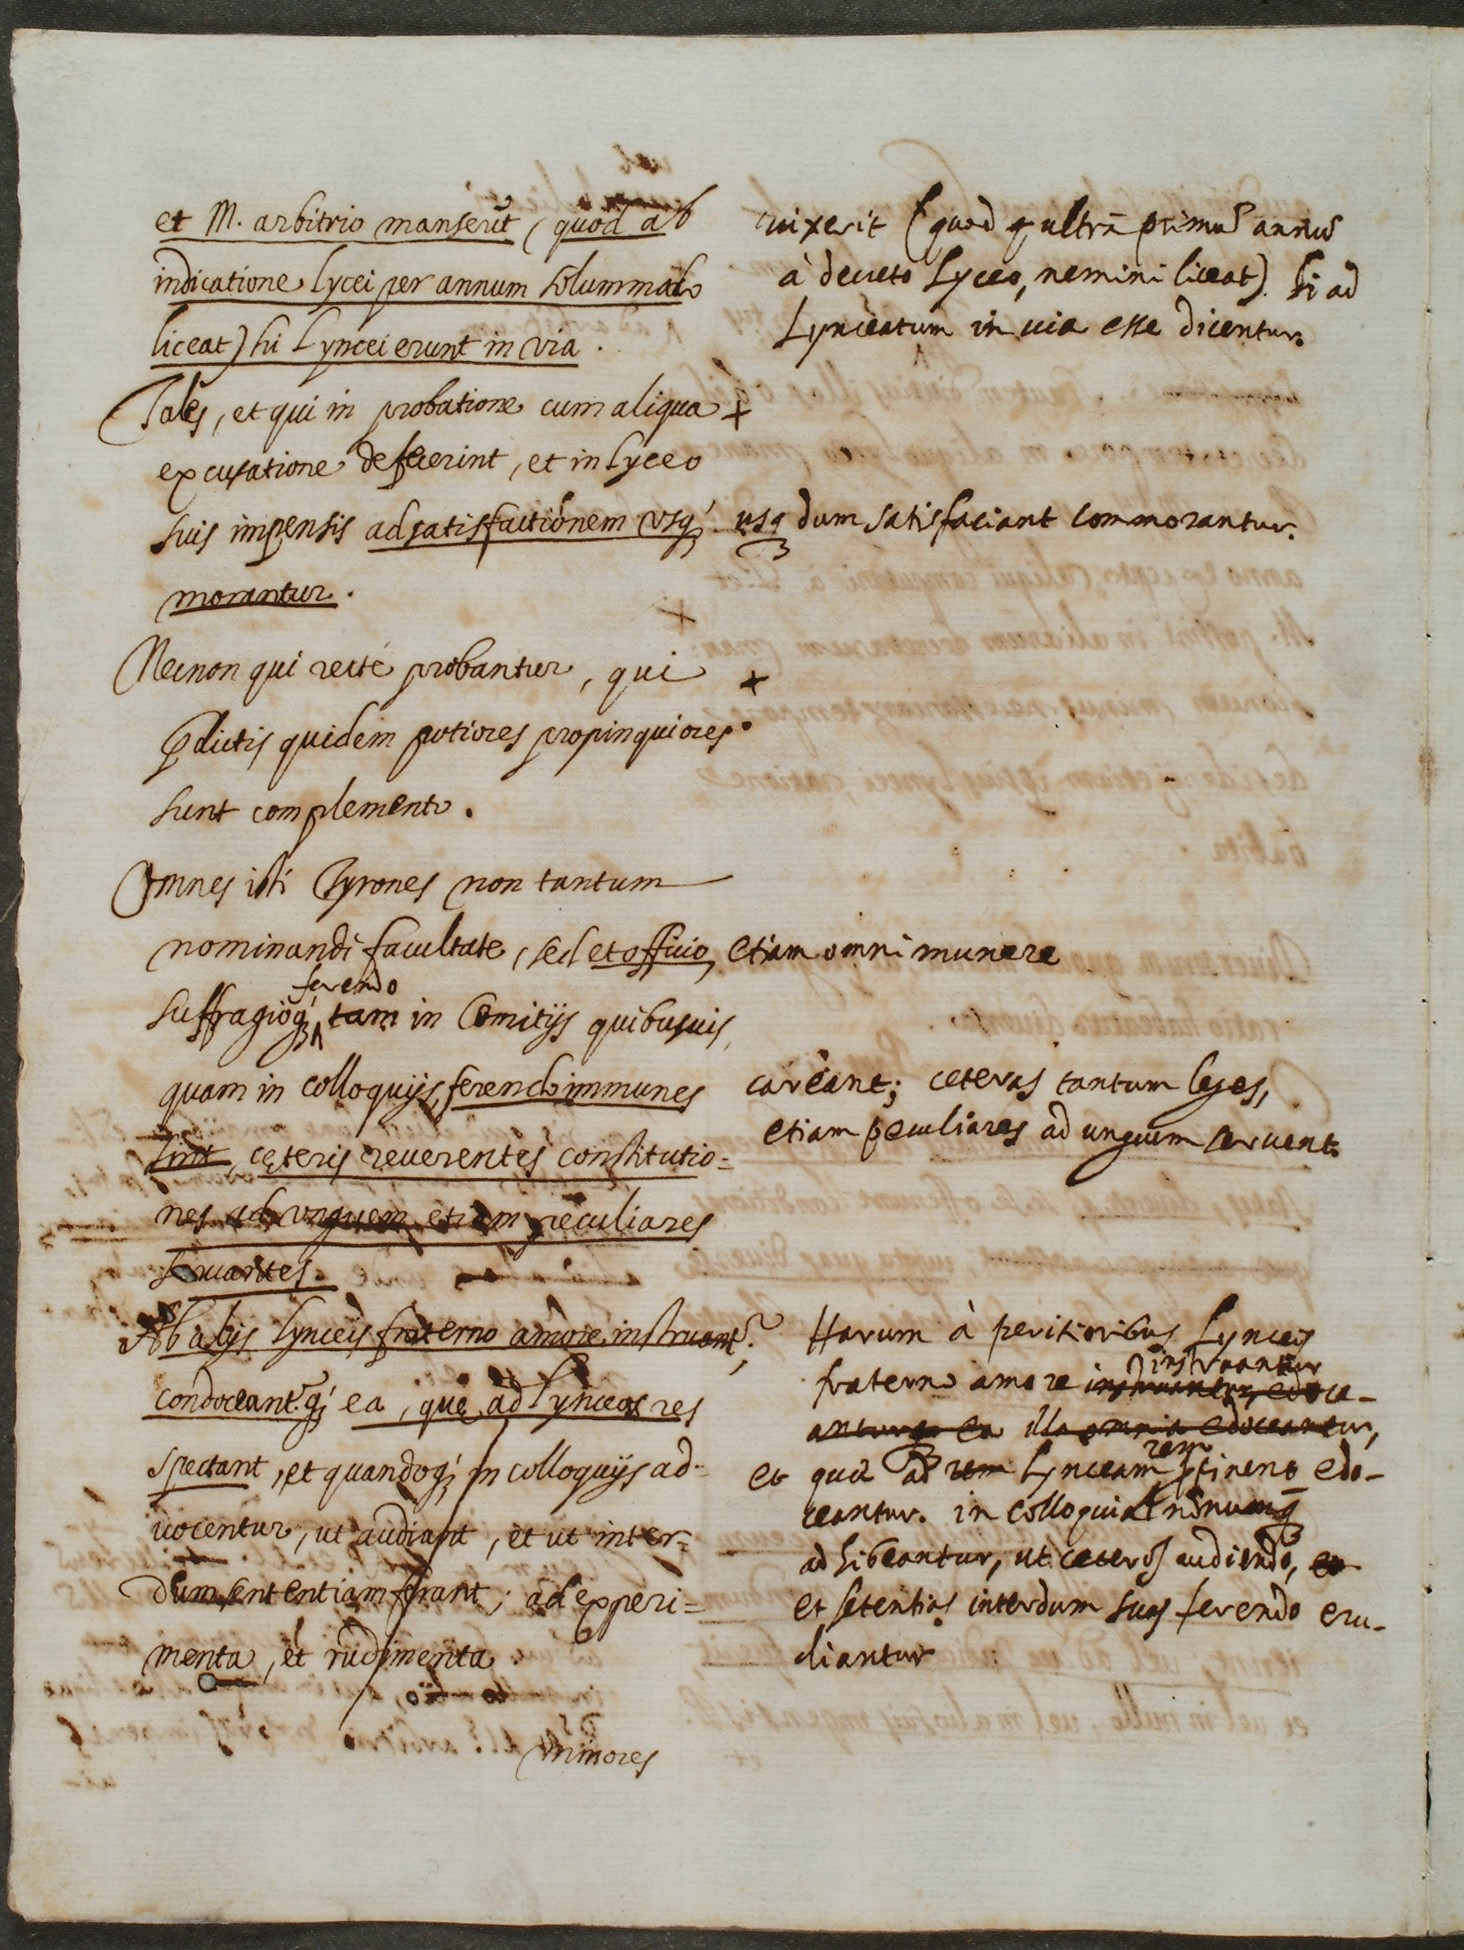 et M. arbitrio manserūt (quod ab
indicatione Lycei per annum solummodo
liceat) hi Lyncei erunt in via.
Tales, et qui in probatione cum aliqua +
excusatione defecerint, et in Lyceo
suis impensis ad satisfactionem usq;
morantur.
Necnon qui recté probantur, qui +
p̄dictis quidem potiores propinquiores
sunt complemento.
Omnes isti Tyrones non tantum
nominandi facultate, sed et officio,
ferendo
suffragioq; tam in Comitijs quibusuis,
quam in colloquijs, ferendo immunes
sint, cęteris reuerentes constitutio=
nes ad unguem etiam peculiares
seruantes.
Ab alijs Lynceis fraterno amore instruant.r
condoceant.rq; ea, quę ad Lynceas res
spectant, et quandoq; in colloquijs ad=
uocentur, ut audiant, et ut inter=
dum sententiam ferant; ad experi=
menta, et rudimenta.
minores
uixerit (quod ultrā primū annū
à decreto Lyceo, nemini liceat). hi ad
Lynceatum in uia esse dicentur.
usq; dum satisfaciant commorantur.
etiam omni munere
careant; ceteras tantum leges,
etiam peculiares ad unguem seruent.
Harum à peritioribus Lynceis
instruantur
fraterno amore instruantur, edoce-
anturq; ea illa omnia edoceantur,
rem
et quid ad rem Lynceam ptinens edo-
ceantur. in colloquia nōnunq̄
adhibeantur, ut ceteros audiendo, et
et setentias interdum suas ferendo eru-
diantur